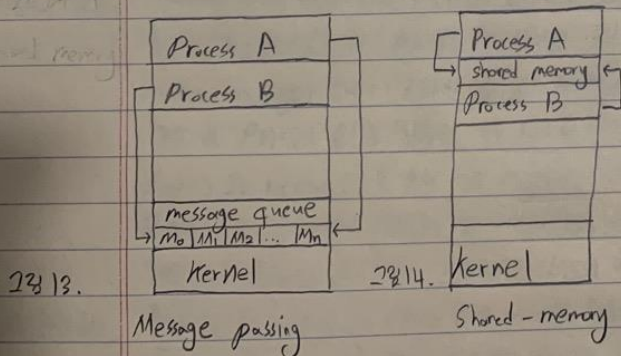 Process A
Process B
message queue
M0 M1 M2 ... Mn
Kernel
그림 13.
Message passing
Process A
shared memory
Process B
Kernel
그림 14.
Shared-memory